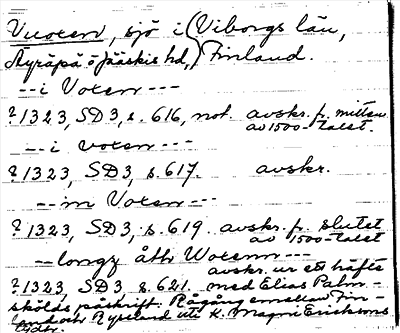 Vuoxen, sjö i (Viborgs län,
Äyräpä o Jääskis hd,) Finland.
--i Voxen---
? 1323, SD 3, s. 616, not. avskr. fr. mitten
av 1500-talet.
--i voxen---
? 1323, SD 3, s. 617. avskr.
--in Voxen---
? 1323, SD 3, s. 619. avskr. fr. slutet
av 1500-talet
--longx åth Woxenn---
avskr. ur ett häfte
? 1323, SD 3 s. 621. med Elias Palm-
skölds påskrift. Rågång emellan Fin-
land och Ryssland uti K. Magni Ericksons